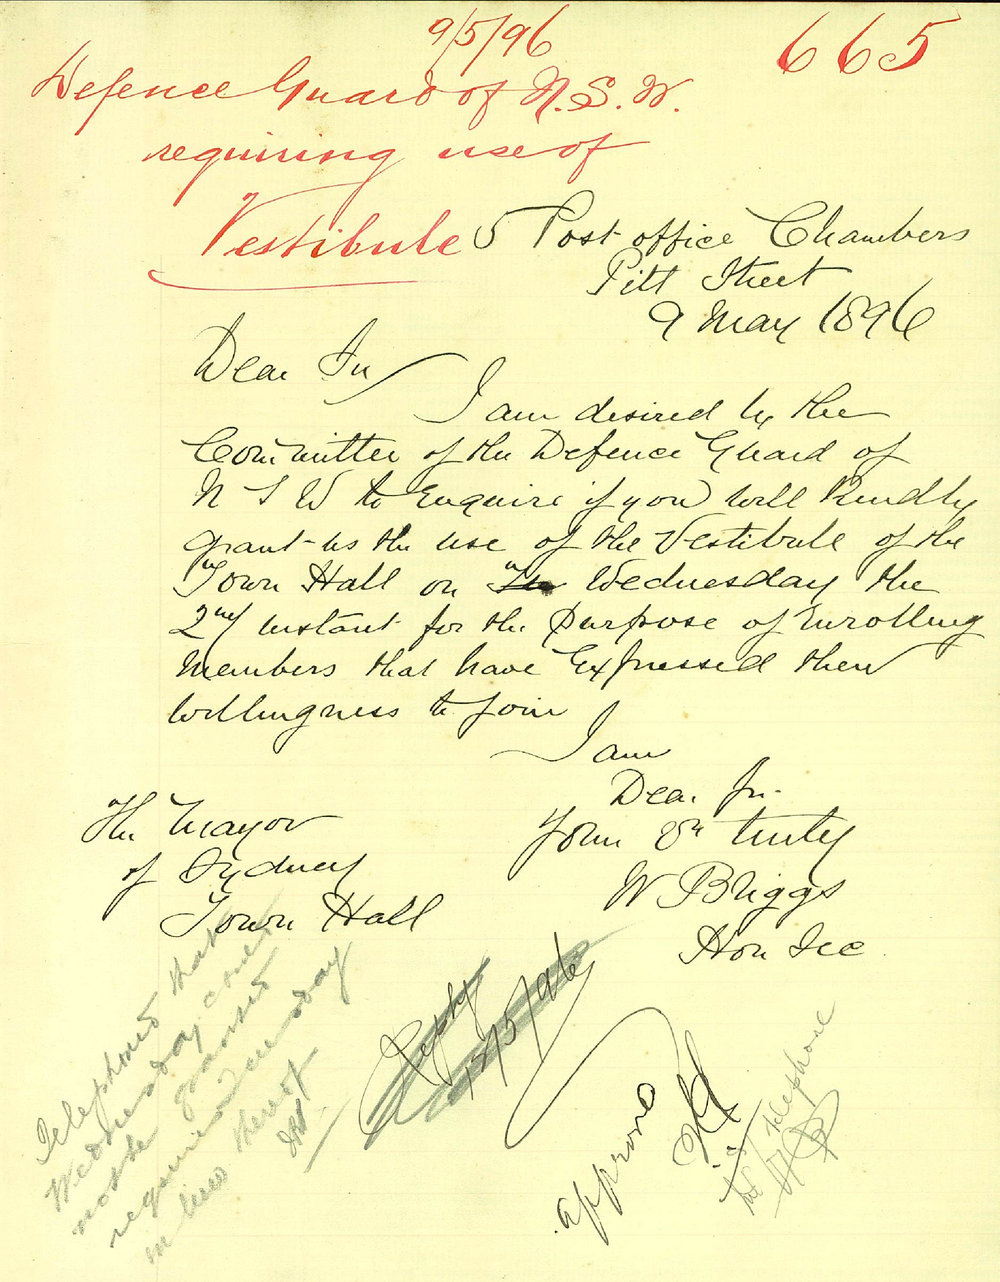 9/5/96
665
Defence Guard of N.S.W.
requiring use of
Vestibule
5 Post office Chambers
Pitt Street
9 May 1896
Dear Sir
I am desired by the
Committee of the Defence Guard of
N S W to Enquire if you will Kindly
grant us the use of the Vestibule of the
Town Hall on Wednesday the
instant for the purpose of Enrolling
Members that have Expressed their
willingness to join
I am
Dear Sir
Yours Truly
W Briggs
Hon Sec
The Mayor
of Sydney
Town Hall
Telephoned that
Wednesday
not be granted
required Tuesday
in lieu thereof
Reply
12/5/96
approved
by telephone